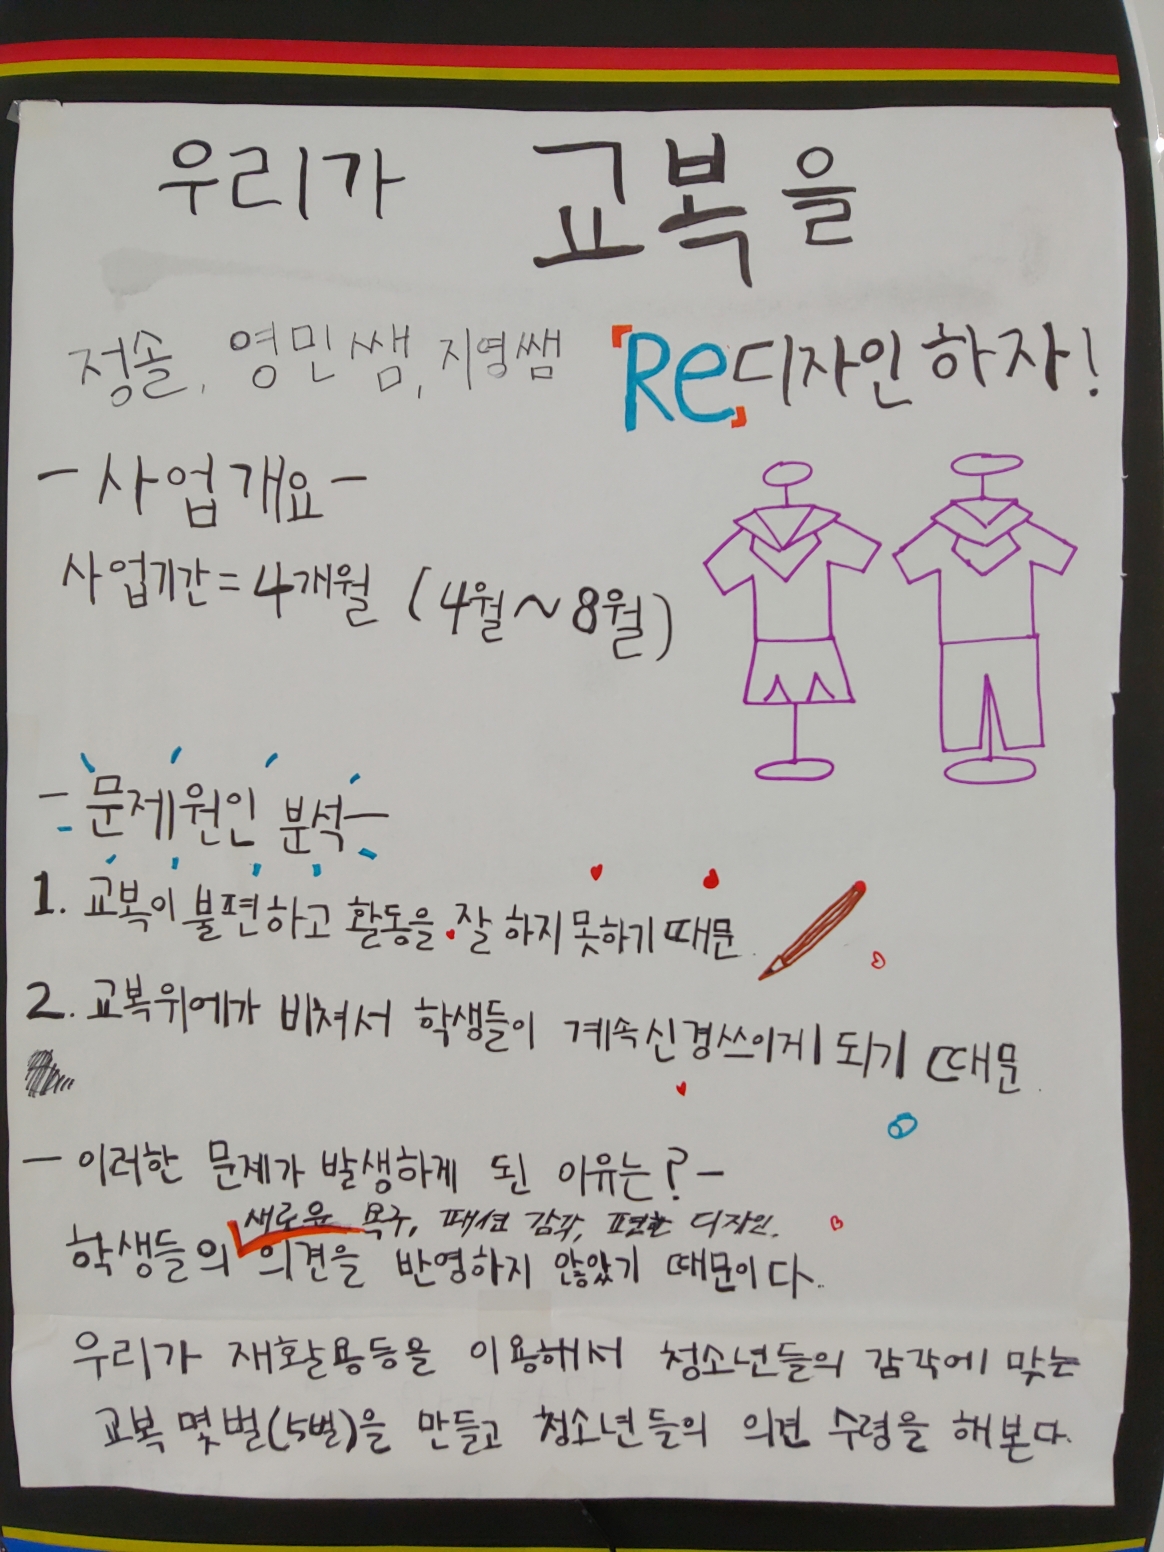 우리가 교복을
정솔, 영민쌤, 지영쌤 「Re」디자인하자!
-사업개요-
사업기간=4개월 (4월~8월)
-문제원인 분석-
1. 교복이 불편하고 활동을 잘 하지 못하기 때문
2. 교복위에가 비쳐서 학생들이 계속신경쓰이게 되기 때문
-이러한 문제가 발생하게 된 이유는?-
새로운 욕구, 패션 감각, 편한 디자인.
학생들의 의견을 반영하지 않았기 때문이다.
우리가 재활용등을 이용해서 청소년들의 감각에 맞는
교복 몇벌(5벌)을 만들고 청소년들의 의견 수령을 해본다.